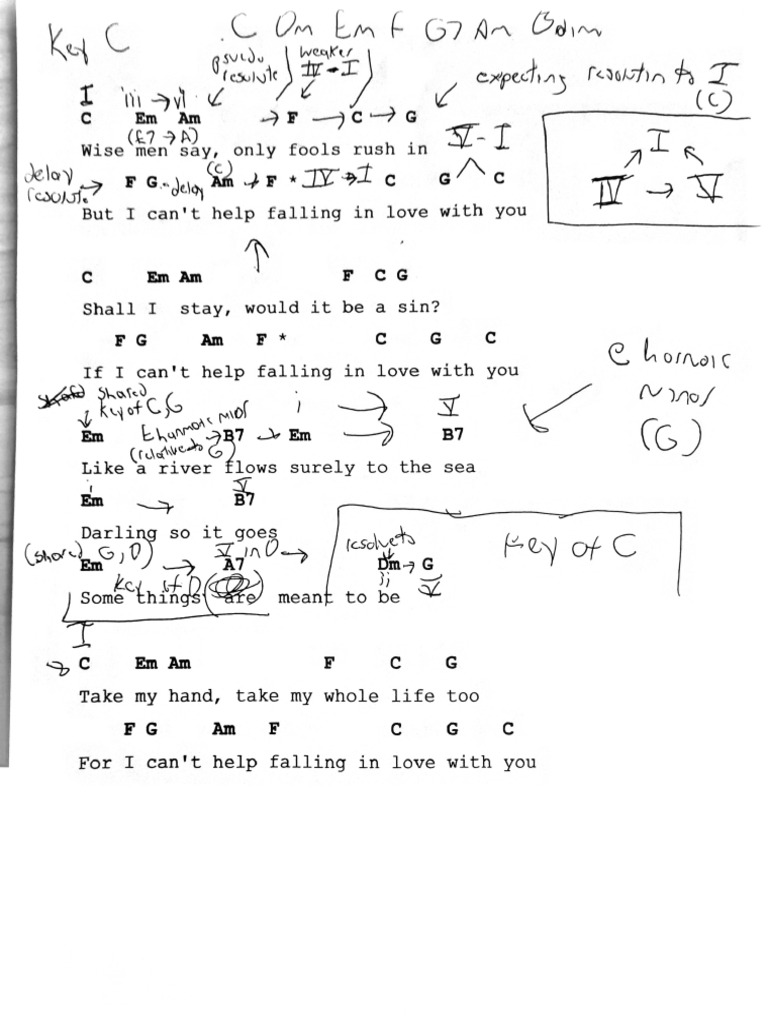 Key C .C Dm Em F G7 Am Bdim
psuedo resolute weaker IV → I
expecting resolutin to I (C)
I iii → vi
C Em Am → F → C → G
(E7 → A)
Wise men say, only fools rush in V - I
delay resolute → F G - delay Am (C) → F * IV → I C G C
But I can't help falling in love with you
I
IV → V
C Em Am F C G
Shall I stay, would it be a sin?
F G Am F * C G C
If I can't help falling in love with you
E harmoic minor (G)
shared key of C, G
E harmoic
(relative to G)
i → V
Em → B7 → Em → B7
Like a river flows surely to the sea
i V
Em → B7
Darling so it goes
(shared G, D) V in D → resolvets Key of C
Em → A7 Dm → G
Key of D ii V
Some things are meant to be
I
→ C Em Am F C G
Take my hand, take my whole life too
F G Am F C G C
For I can't help falling in love with you